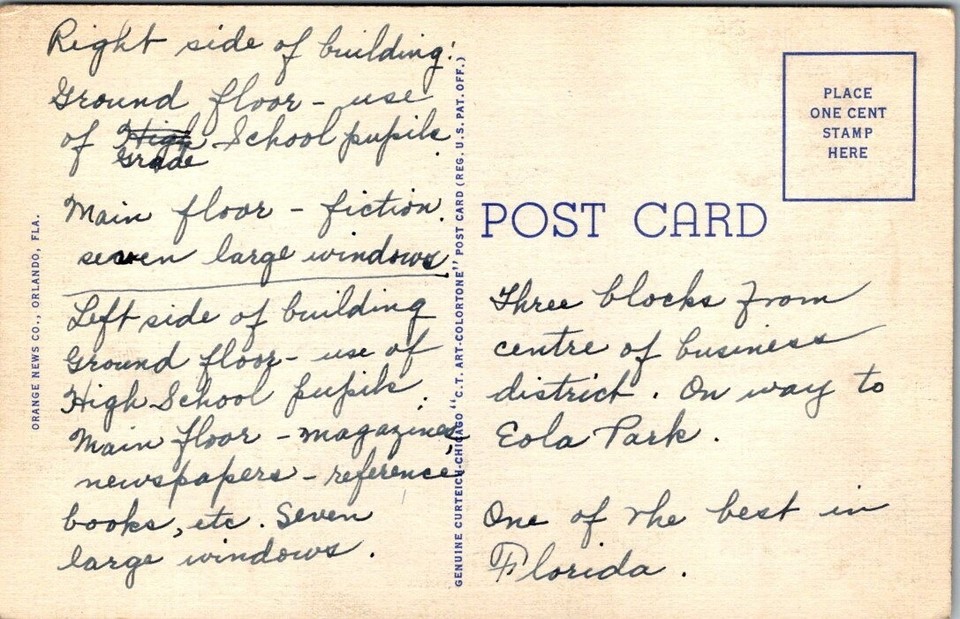 Right side of building:
Ground floor - use
of High School pupils.
Grade
Main floor - fiction.
seven large windows.
Left side of building
Ground floor - use of
High School pupils.
Main floor - magazines,
newspapers - reference
books, etc. Seven
large windows.
ORANGE NEWS CO., ORLANDO, FLA.
GENUINE CURTEICH-CHICAGO "C.T. ART-COLORTONE" POST CARD (REG. U.S. PAT. OFF.)
PLACE
ONE CENT
STAMP
HERE
POST CARD
Three blocks from
centre of business
district. On way to
Eola Park.
One of the best in
Florida.